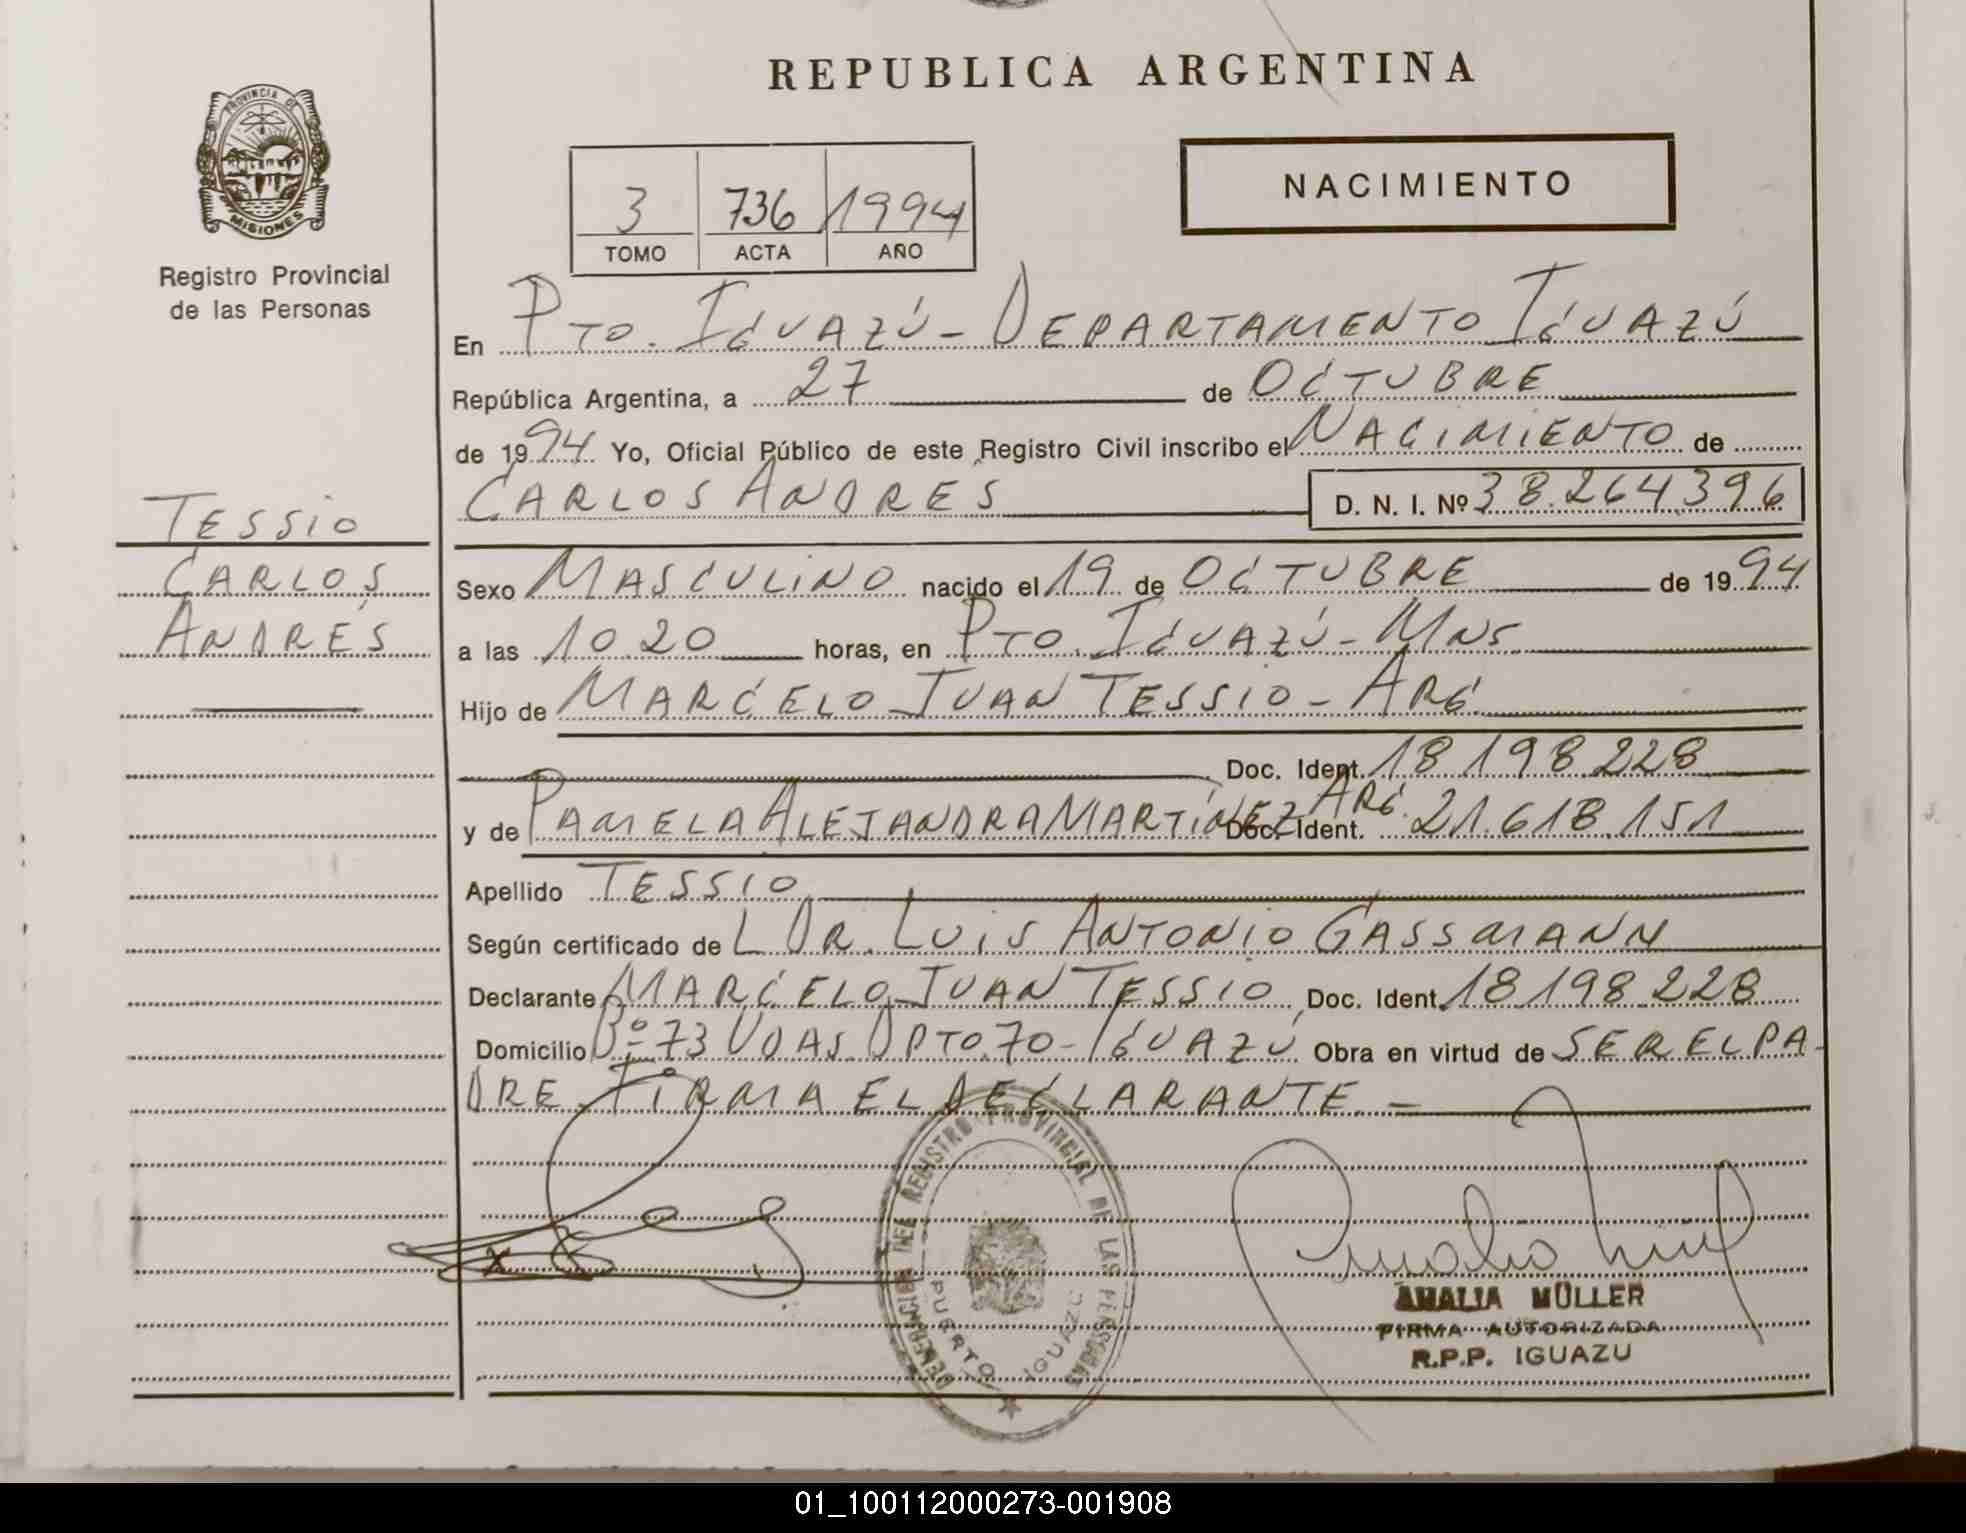 REPUBLICA ARGENTINA
PROVINCIA DE
MISIONES
Registro Provincial
de las Personas
3 736 1994
TOMO ACTA AÑO
NACIMIENTO
En Pto. Iguazú - Departamento Iguazú
República Argentina, a 27 de Octubre
de 1994 Yo, Oficial Público de este Registro Civil inscribo el Nacimiento de
Carlos Andrés D. N. I. Nº 38.264.396
Tessio
Carlos
Andrés
Sexo Masculino nacido el 19 de Octubre de 1994
a las 10.20 horas, en Pto. Iguazú - Mns
Hijo de Marcelo Juan Tessio - Arg.
Doc. Ident. 18.198.228
y de Pamela Alejandra Martínez Arg. Doc. Ident. 21.618.151
Apellido Tessio
Según certificado de L Dr. Luis Antonio Gassmann
Declarante Marcelo Juan Tessio Doc. Ident. 18.198.228
Domicilio Bº 73 Vdas. Dpto. 70 - Iguazú Obra en virtud de ser el pa-
dre. Firma el declarante. -
DELEGACION DEL REGISTRO PROVINCIAL DE LAS PERSONAS
PUERTO IGUAZU
AMALIA MÜLLER
FIRMA AUTORIZADA
R.P.P. IGUAZU
01_100112000273-001908